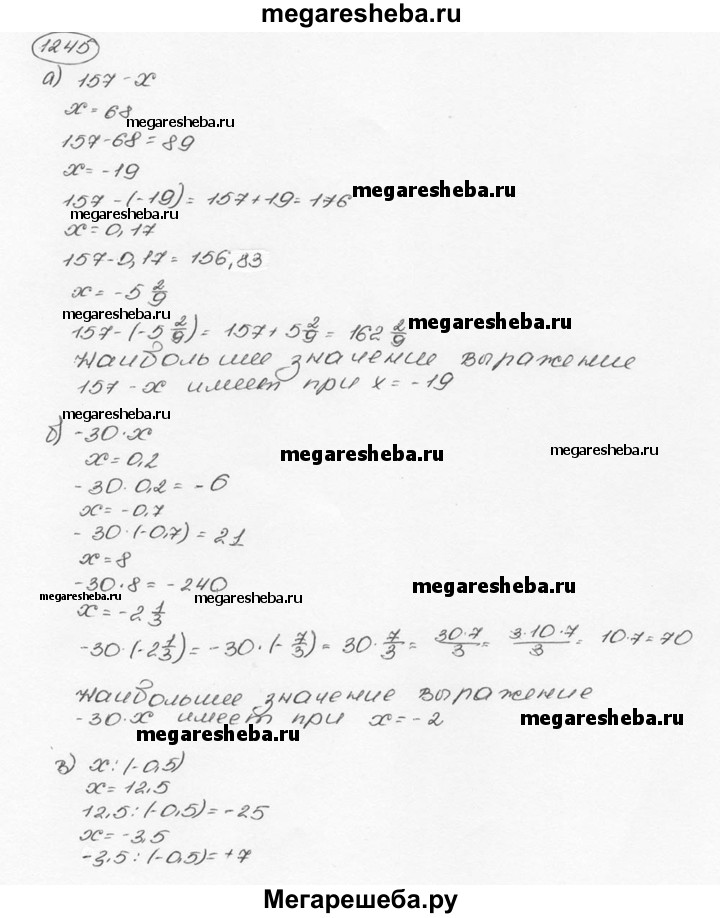 megaresheba.ru
1245
а) 157 - x
x = 68
megaresheba.ru
157 - 68 = 89
x = -19
157 - (-19) = 157 + 19 = 176
megaresheba.ru
megaresheba.ru
x = 0,17
157 - 0,17 = 156,83
x = -5 2/9
megaresheba.ru
157 - (-5 2/9) = 157 + 5 2/9 = 162 2/9
megaresheba.ru
наибольшее значение выражение
157 - x имеет при x = -19
megaresheba.ru
б) -30·x
x = 0,2
megaresheba.ru
-30·0,2 = -6
x = -0,7
-30·(-0,7) = 21
x = 8
-30·8 = -240
megaresheba.ru
megaresheba.ru
megaresheba.ru
x = -2 1/3
-30·(-2 1/3) = -30·(-7/3) = 30·7/3 = 30·7/3 = 3·10·7/3 = 10·7 = 70
наибольшее значение выражение
-30·x имеет при x = -2
megaresheba.ru
megaresheba.ru
в) x : (-0,5)
x = 12,5
12,5 : (-0,5) = -25
x = -3,5
-3,5 : (-0,5) = +7
Мегарешеба.ру